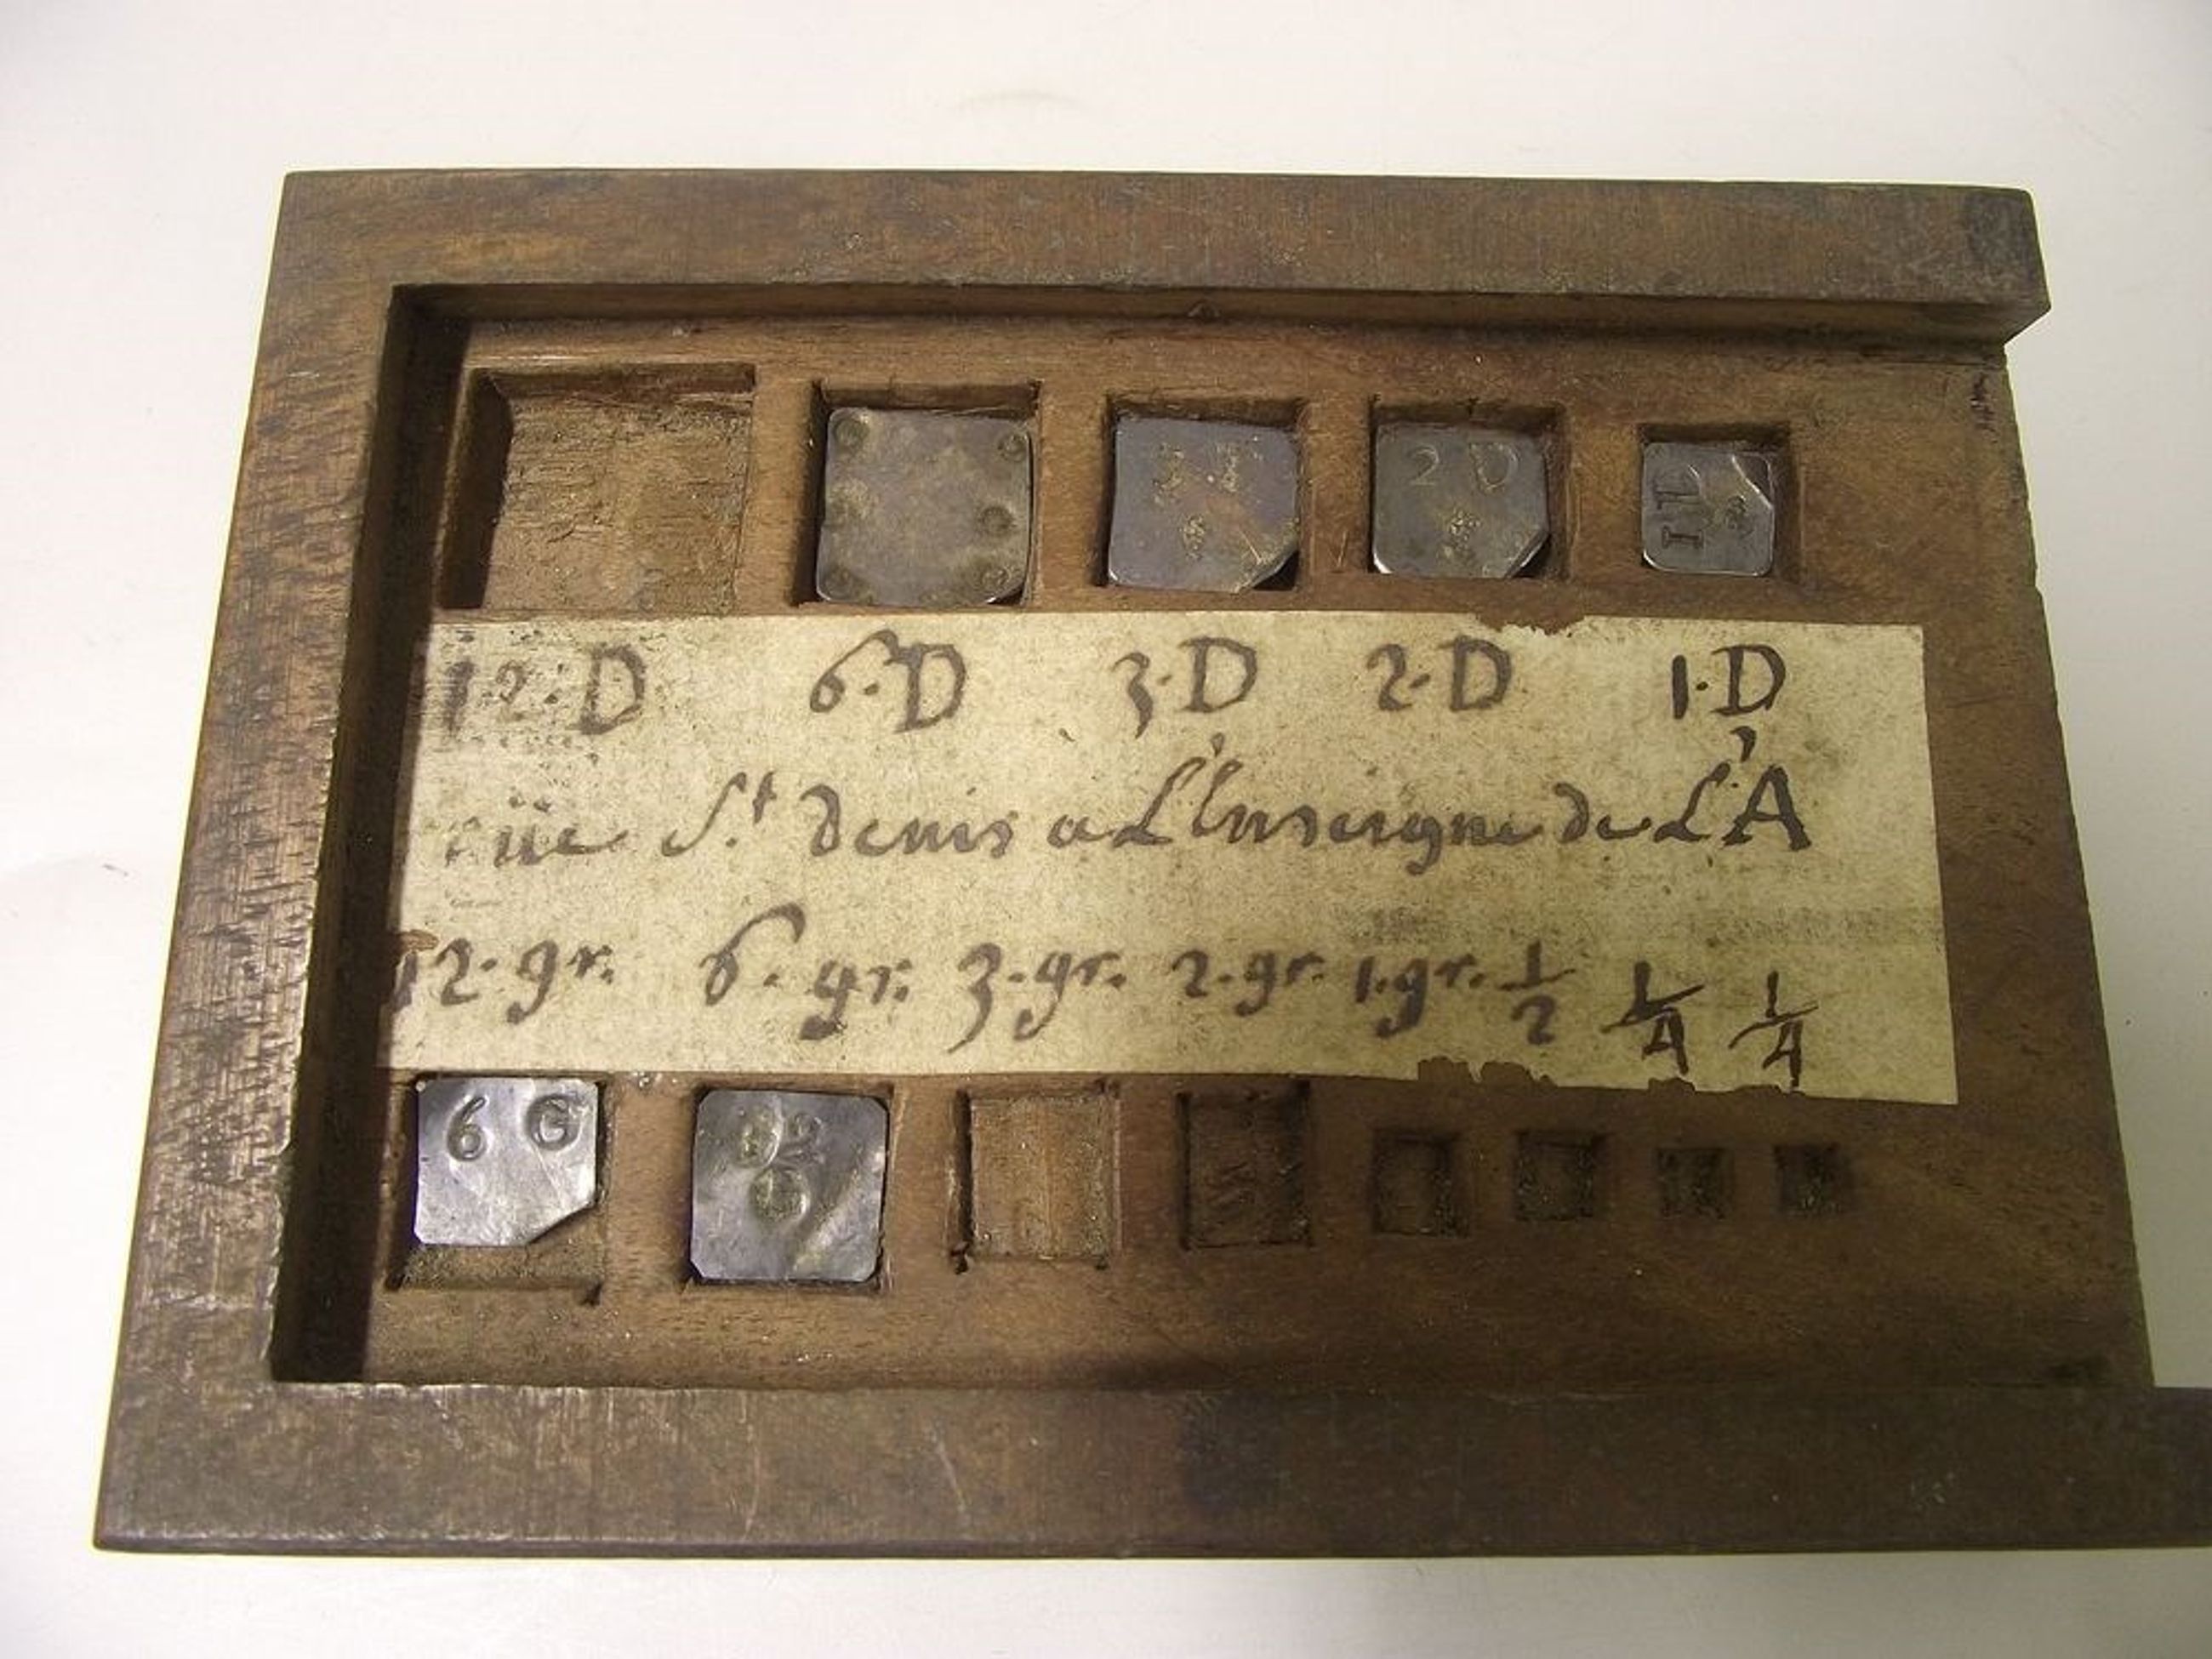 2 D
12·D 6·D 3·D 2·D 1·D
rüe S.t denis a L'Enseigne de L'A
12·gr. 6·gr. 3·gr. 2·gr. 1·gr. 1/2 1/4 1/4
6 G